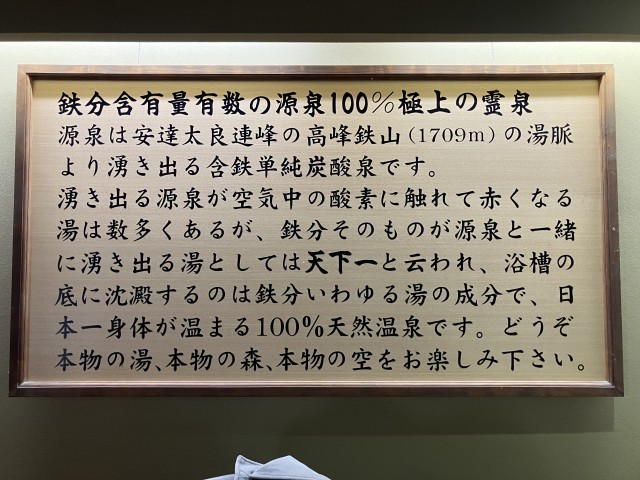 鉄分含有量有数の源泉100％極上の霊泉
源泉は安達太良連峰の高峰鉄山(1709m)の湯脈
より湧き出る含鉄単純炭酸泉です。
湧き出る源泉が空気中の酸素に触れて赤くなる
湯は数多くあるが、鉄分そのものが源泉と一緒
に湧き出る湯としては天下一と云われ、浴槽の
底に沈澱するのは鉄分いわゆる湯の成分で、日
本一身体が温まる100％天然温泉です。どうぞ
本物の湯、本物の森、本物の空をお楽しみ下さい。